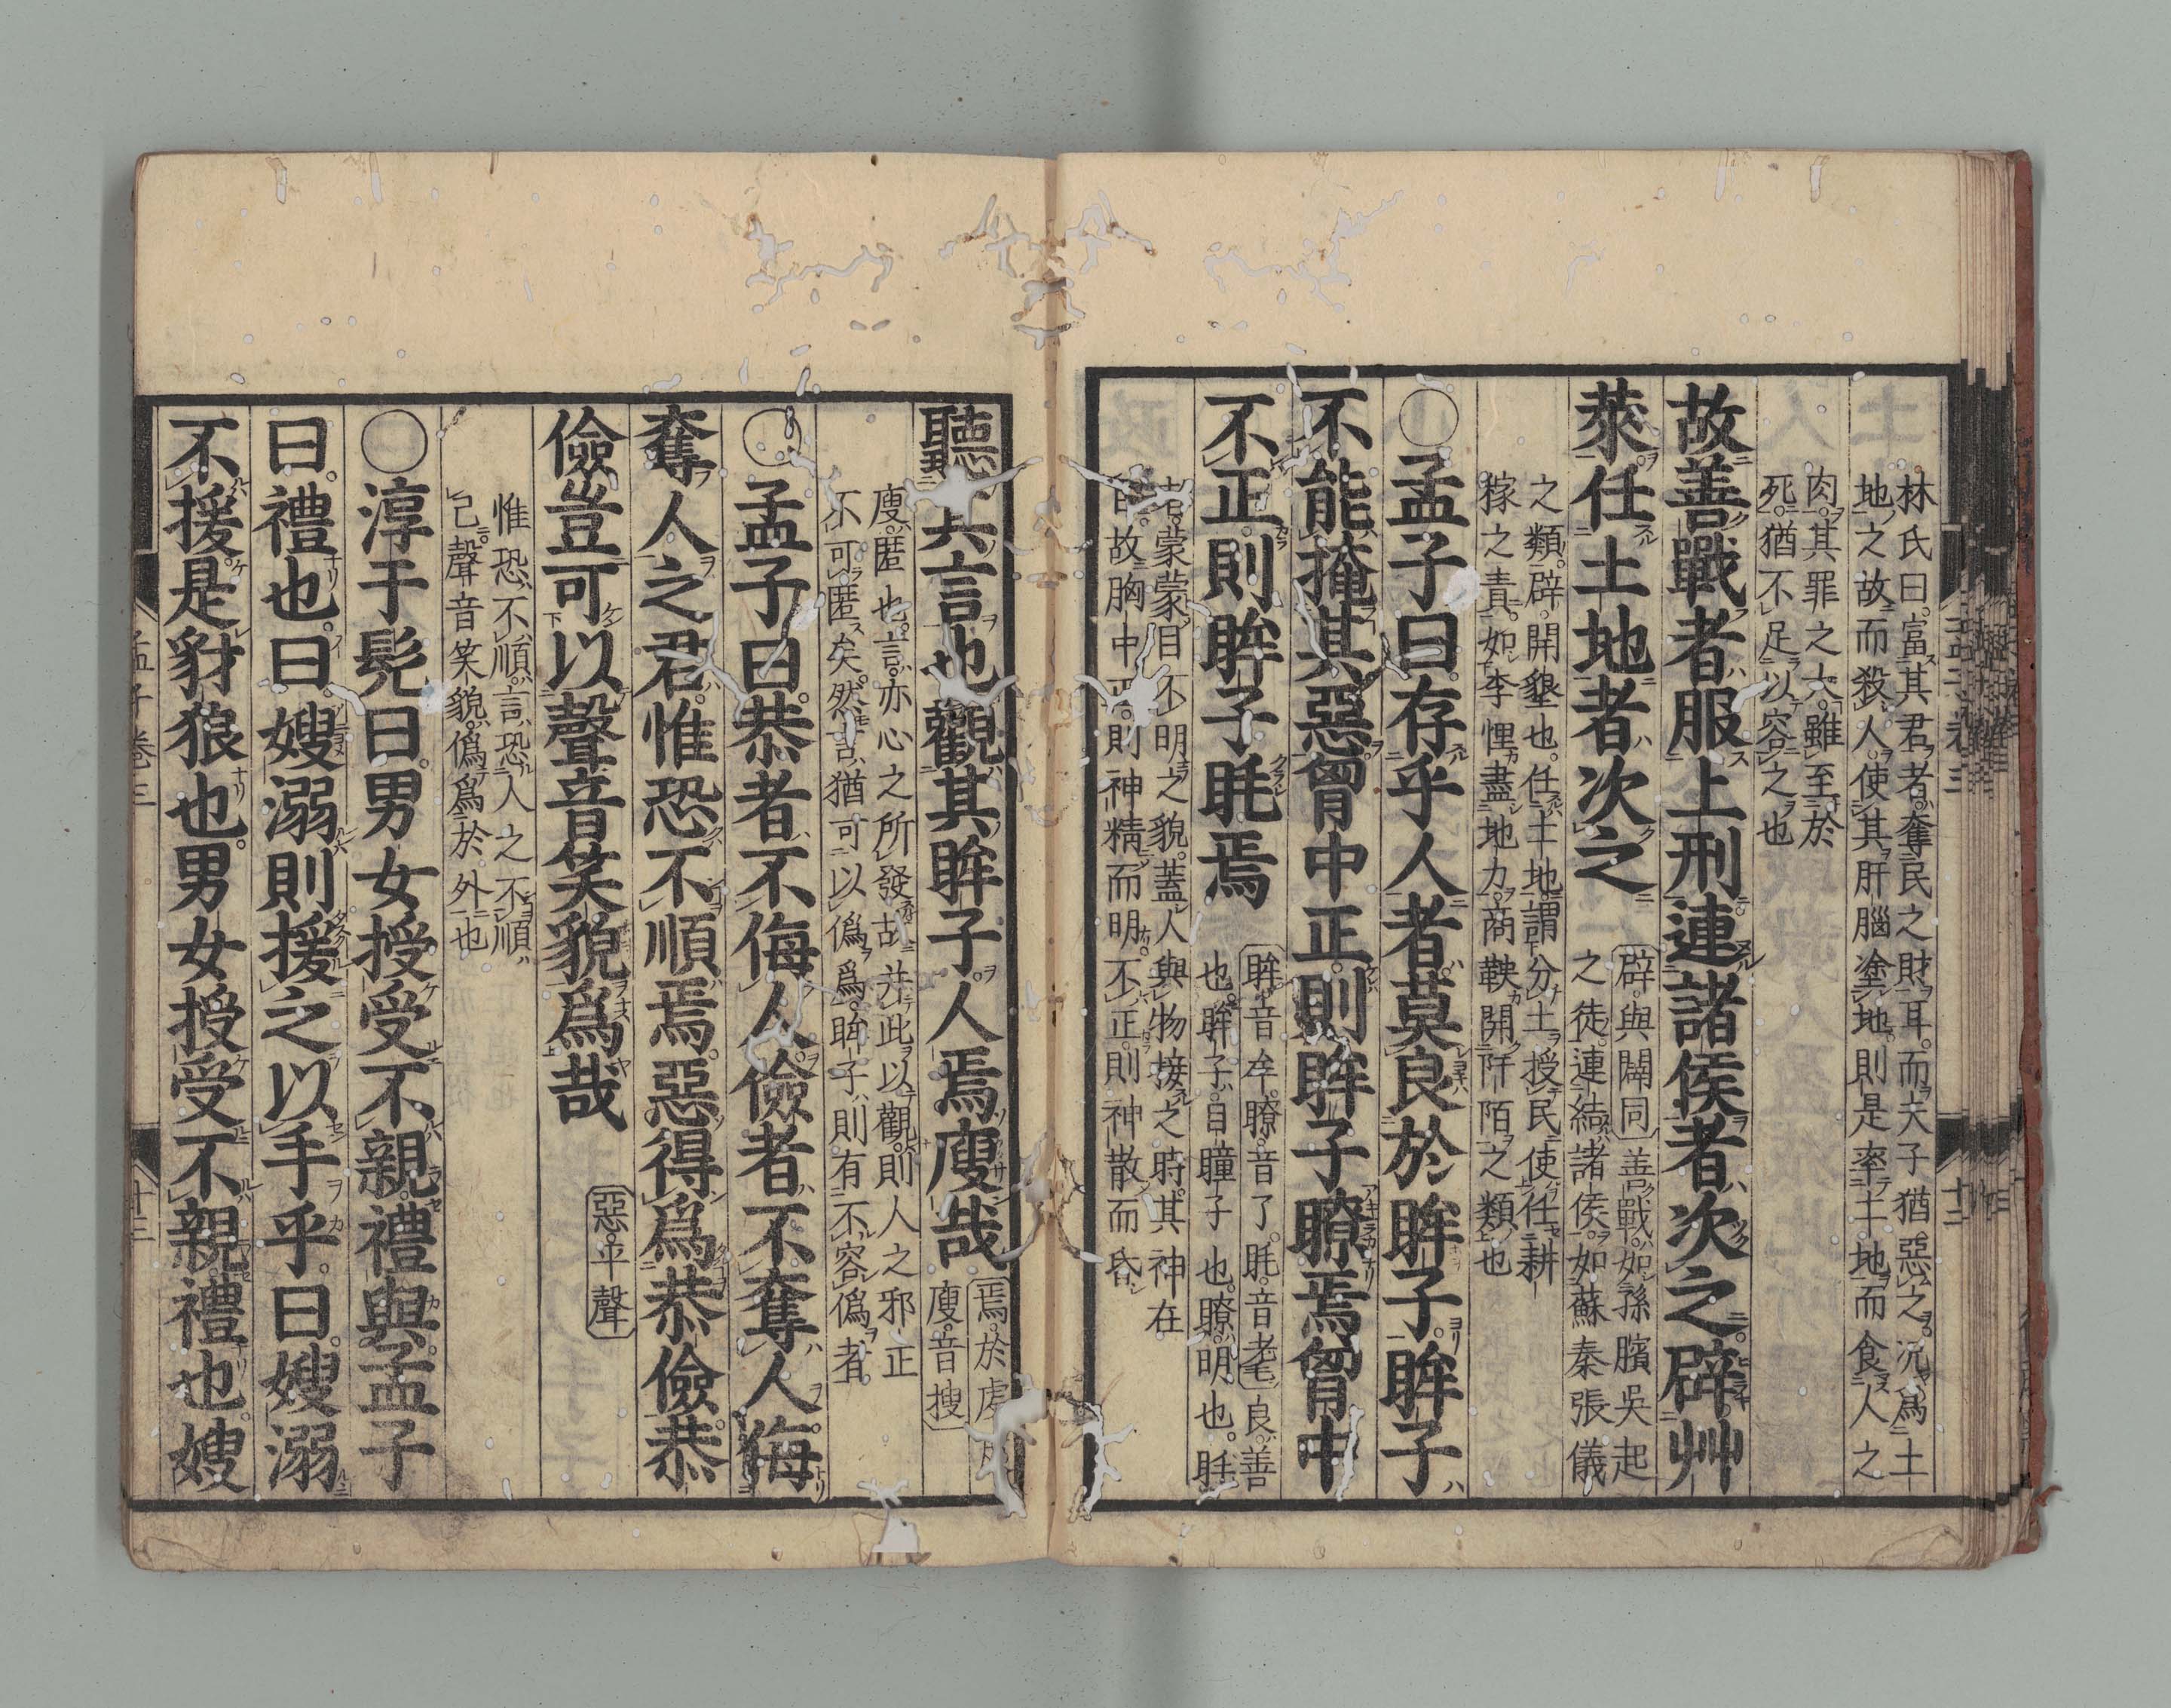 林氏曰富其君者奪民之財耳而夫子猶惡之況爲土
地之故而殺人使其肝腦塗地則是率土地而食人之
肉其罪之大雖至於
死猶不足以容之也
故善戰者服上刑連諸侯者次之辟艸
萊任土地者次之
辟與闢同善戰如孫臏吳起
之徒連結諸侯如蘇秦張儀
之類辟開墾也任土地謂分土授民使任耕
稼之責如李悝盡地力商鞅開阡陌之類也
○孟子曰存乎人者莫良於眸子眸子
不能掩其惡胷中正則眸子瞭焉胷中
不正則眸子眊焉
眸音牟瞭音了眊音耄良善
也眸子目瞳子也瞭明也眊
者蒙蒙目不明之貌蓋人與物接之時其神在
目故胸中正則神精而明不正則神散而昏
聽其言也觀其眸子人焉廋哉
焉於虔反
廋音搜
廋匿也言亦心之所發故并此以觀則人之邪正
不可匿矣然言猶可以僞爲眸子則有不容僞者
○孟子曰恭者不侮人儉者不奪人侮
奪人之君惟恐不順焉惡得爲恭儉恭
儉豈可以聲音笑貌爲哉
惡平聲
惟恐不順言恐人之不順
己聲音笑貌僞爲於外也
○淳于髡曰男女授受不親禮與孟子
曰禮也曰嫂溺則援之以手乎曰嫂溺
不援是豺狼也男女授受不親禮也嫂
孟子卷三
十三